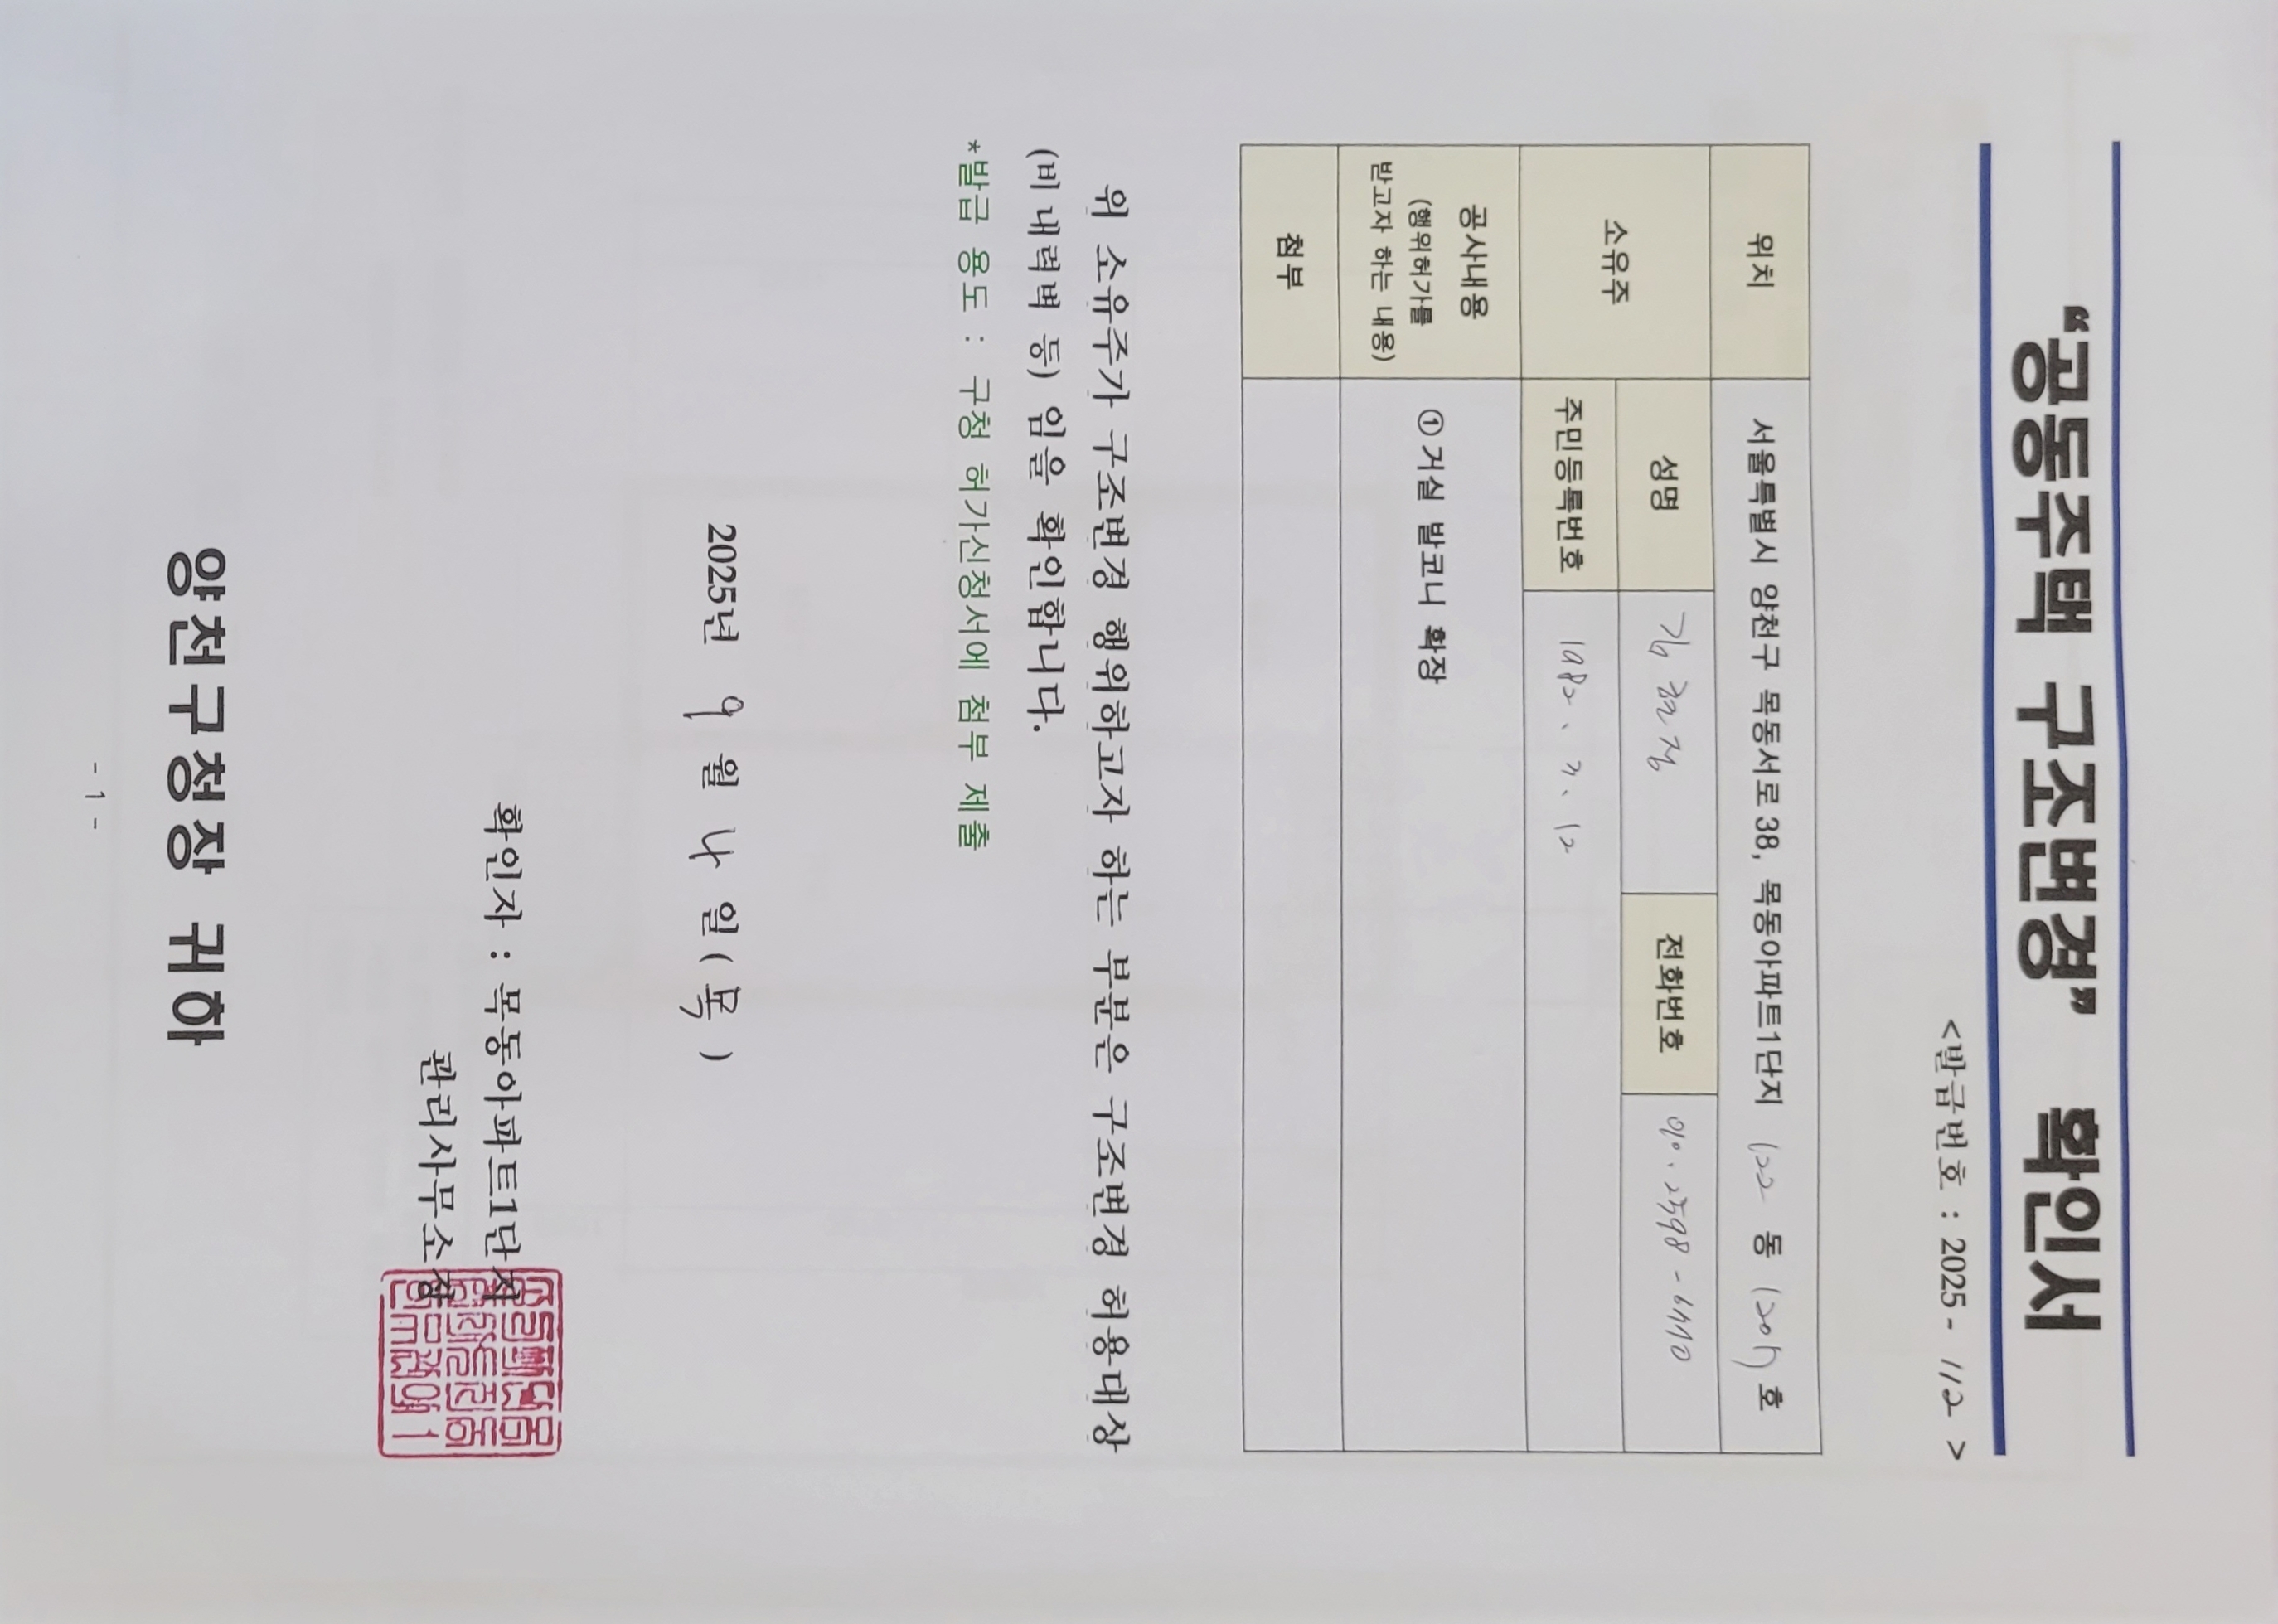 “공동주택 구조변경” 확인서
<발급번호 : 2025 - 112 >
위치 서울특별시 양천구 목동서로 38, 목동아파트1단지 122 동 호
소유주 성명 김현정 전화번호 010. 2598 -
주민등록번호 1982. 3. 12
공사내용
(행위허가를
받고자 하는 내용)
① 거실 발코니 확장
첨부
위 소유주가 구조변경 행위하고자 하는 부분은 구조변경 허용대상
(비내력벽 등) 임을 확인합니다.
*발급 용도 : 구청 허가신청서에 첨부 제출
2025년 9 월 4 일 ( 목 )
확인자 : 목동아파트1단지
관리사무소장
양천구청장 귀하
- 1 -